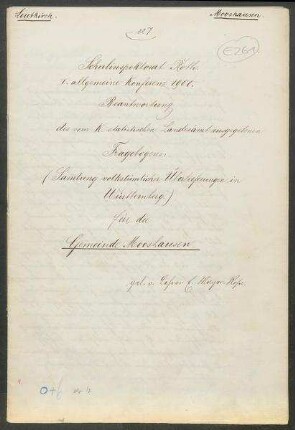 Leutkirch.
Mooshausen
N 7.
E 261
Schulinspektorat Roth.
1. allgemeine Konferenz 1901.
Beantwortung
des vom K. statistischen Landesamt ausgegebenen
Fragebogens
(Samlung volkstümlicher Überlieferungen in
Württemberg.)
für die
Gemeinde Mooshausen